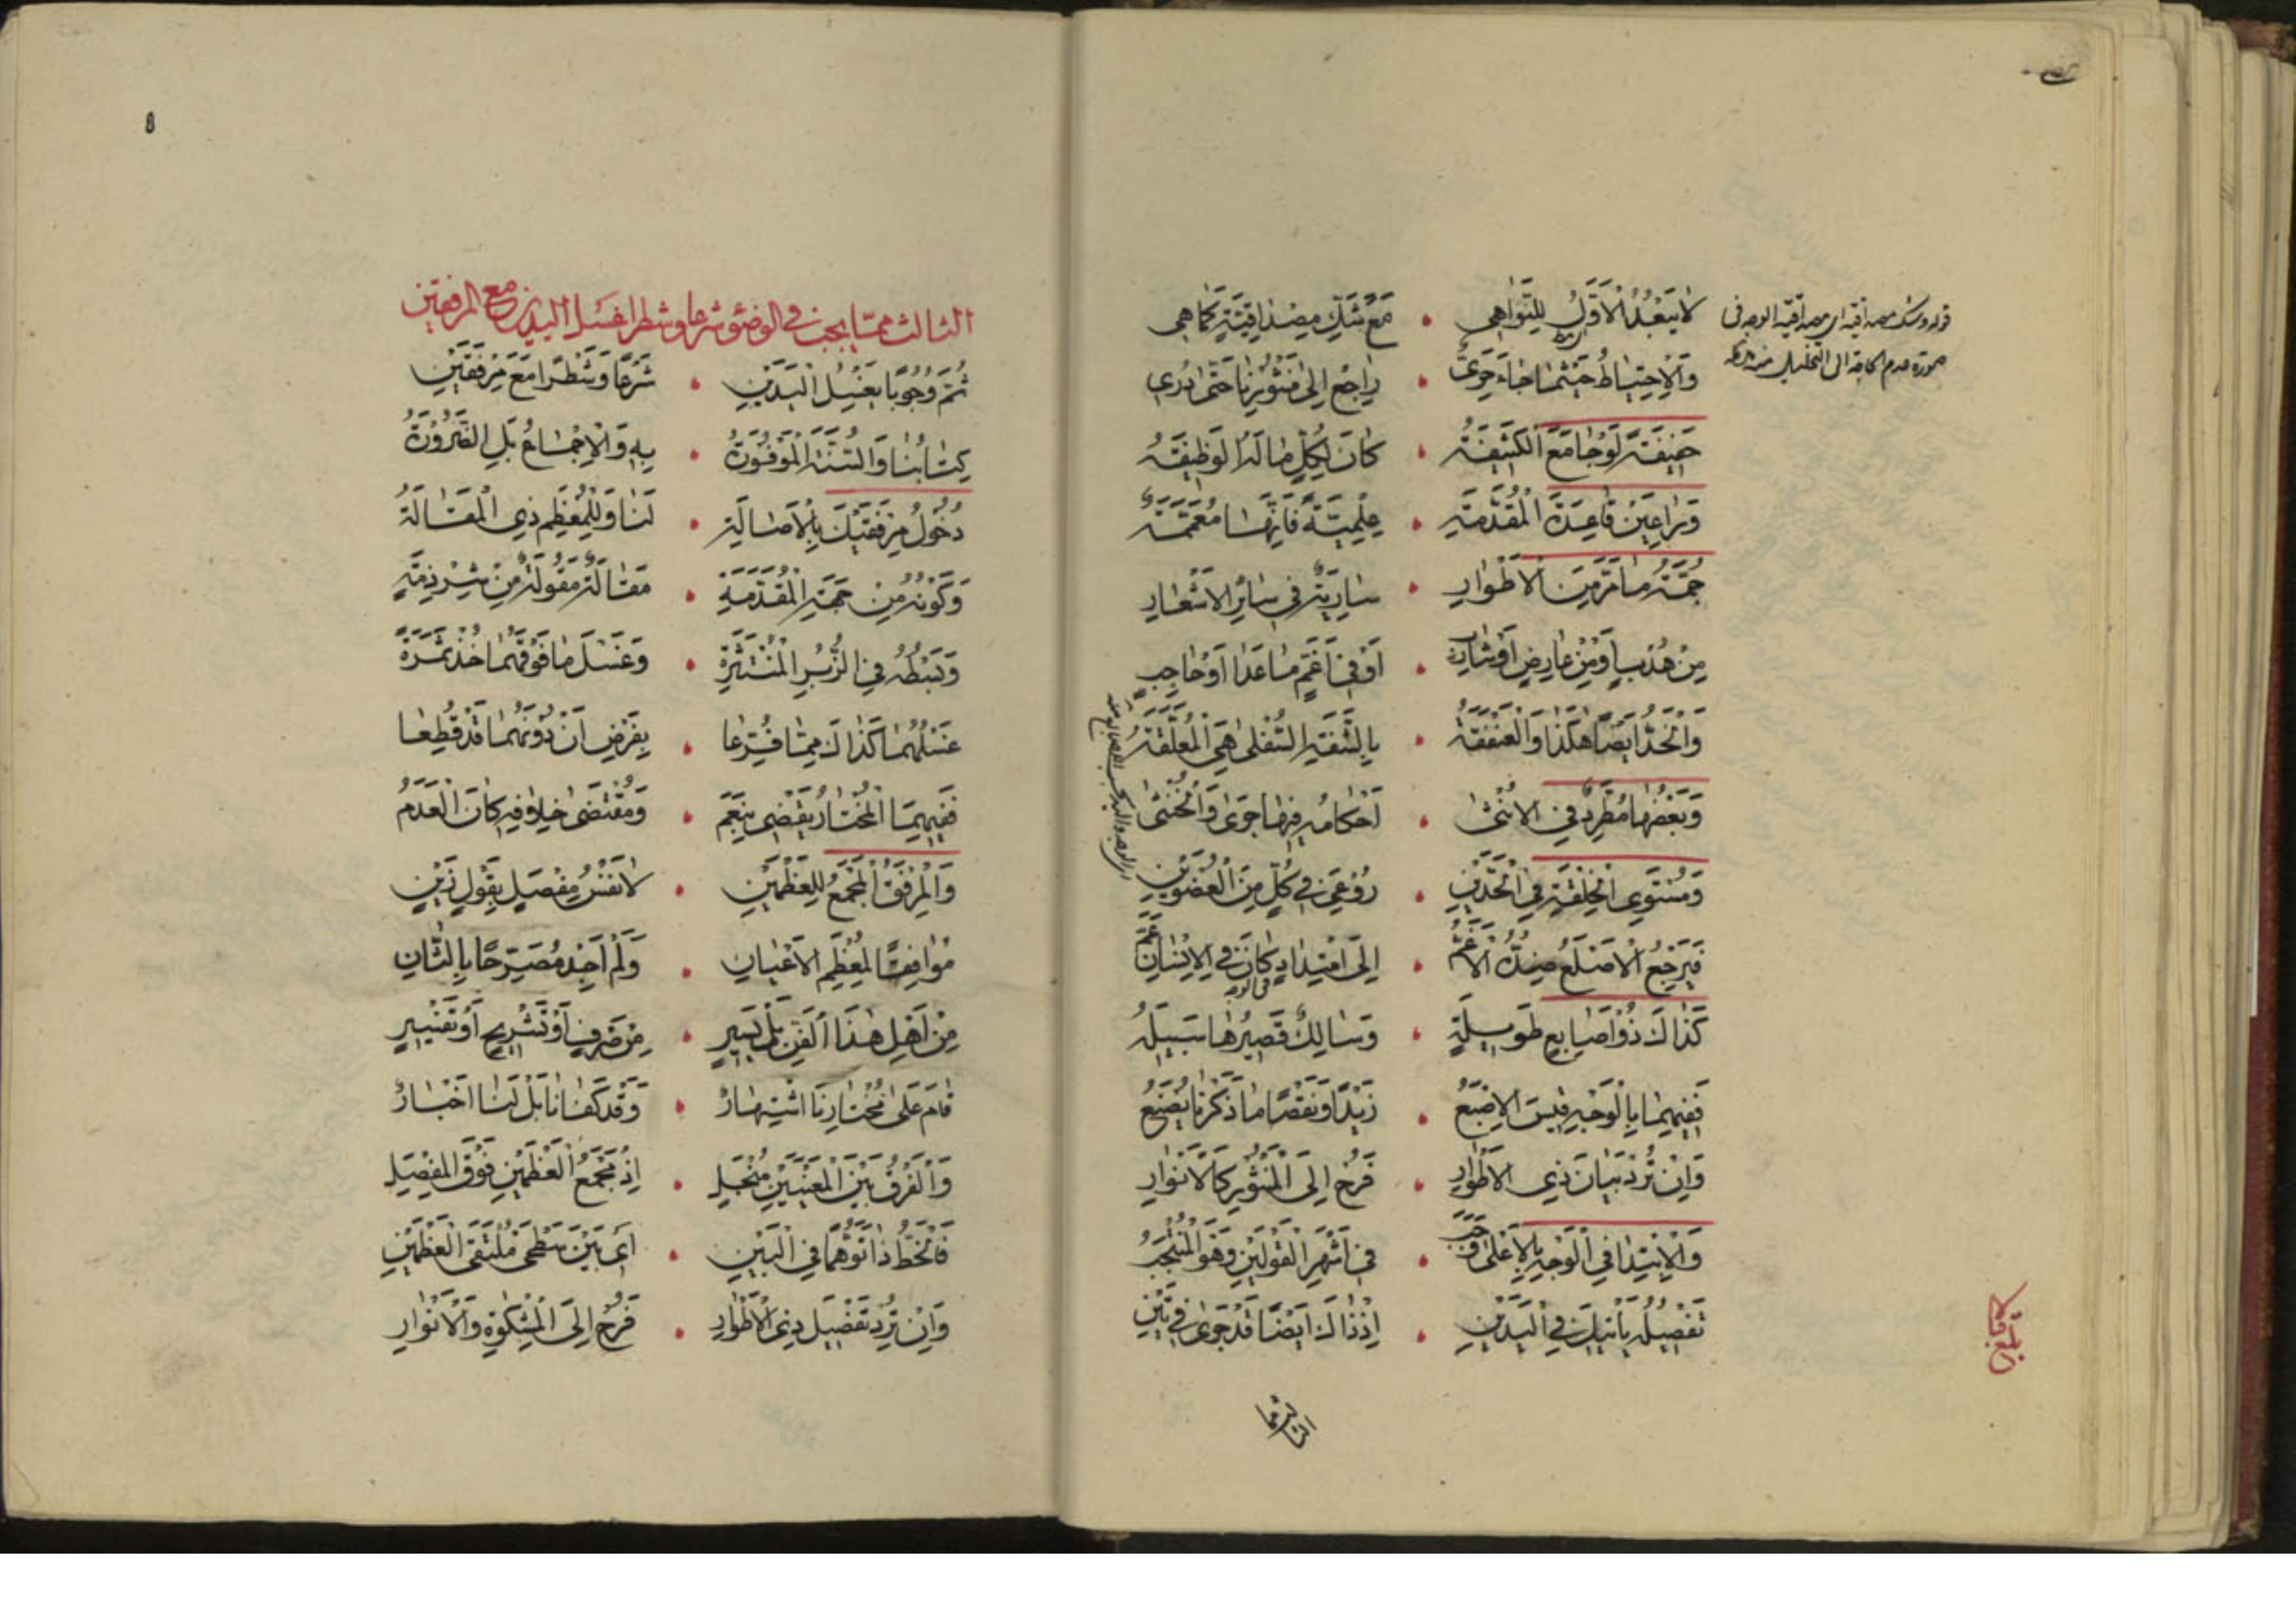 لَا يَبْعُدُ الْأَوَّلُ لِلنَّوَاهِي • مَعْ شَكِّ مِصْدَاقِيَّةٍ كَمَا هِي
وَالْإِحْتِيَاطُ حَيْثُمَا جَاءَ حَرِيّ • رَاجِعْ إِلَى مَنْثُورِنَا حَتَّى دُرِي
خَفِيفَةٌ لَوْ جَامَعَ الْكَثِيفَةُ • كَانَ لِكُلٍّ مَا لَهُ الْوَظِيفَةُ
وَرَاعِيَنْ قَاعِدَةَ الْمُقَدِّمَةِ • عِلْمِيَّةً فَإِنَّهَا مُعَمَّمَةٌ
جُمَّةُ مَا مَرَّ مِنَ الْأَطْوَارِ • سَارِيَةٌ فِي سَائِرِ الْأَشْعَارِ
مِنْ هُدْبٍ أَوْ مِنْ عَارِضٍ أَوْ شَارِبٍ • أَوْ فِي أَغَمٍّ مَا عَدَا أَوْ حَاجِبٍ
وَالْخَدُّ أَيْضًا هٰكَذَا وَالْعَنْفَقَةُ • بِالشَّفَةِ السُّفْلَى هِيَ الْمُعَلَّقَةُ
وَبَعْضُهَا مُطَّرِدٌ فِي الْأُنْثَى • أَحْكَامُهُ فِيهَا جَرَى وَالْخُنْثَى
وَمُسْتَوِي الْخِلْقَةِ فِي الْحَدَّيْنِ • رُوعِيَ فِي كُلٍّ مِنَ الْعُضْوَيْنِ
فَيَرْجِعُ الْأَصْلَعُ ضِدُّ الْأَغَمِّ • إِلَى اعْتِدَادٍ كَانَ فِي الْإِنْسَانِ عَمّ
كَذَاكَ ذُو أَصَابِعٍ طَوِيلَةٍ • وَسَالِكٌ قَصِيرُهَا سَبِيلَهُ
فَفِيهِمَا بِالْوَجْهِ قِيسَ الْإِصْبَعُ • زَيْدًا وَنَقْصًا مَا ذَكَرْنَا يُصْنَعُ
وَإِنْ تُرِدْ بَيَانَ ذِي الْأَطْوَارِ • فَرُحْ إِلَى الْمَنْثُورِ كَالْأَنْوَارِ
وَالْإِبْتِدَا فِي الْوَجْهِ بِالْأَعْلَى وَجَبَ • فِي أَشْهَرِ الْقَوْلَيْنِ وَهُوَ الْمُنْتَجَبُ
تَفْصِيلُهُ يَأْتِيكَ فِي الْيَدَيْنِ • إِذْ ذَاكَ أَيْضًا قَدْ جَرَى فِي تَيْنِ
الثالث مما يجب في الوضوء شرعا وشطرا غسل اليدين مع المرفقين
ثُمَّ وُجُوبًا يَغْسِلُ الْيَدَيْنِ • شَرْعًا وَشَطْرًا مَعَ مِرْفَقَيْنِ
كِتَابُنَا وَالسُّنَّةُ الْمَوْفُورَةُ • بِهِ وَالْإِجْمَاعُ بَلِ الضَّرُورَةُ
دُخُولُ مِرْفَقَيْكَ بِالْأَصَالَةِ • لَنَا وَلِلْمُعْظَمِ ذِي الْمَقَالَةُ
وَكَوْنُهُ مِنْ جِهَةِ الْمُقَدِّمَةِ • مَقَالَةٌ مَقُولَةٌ مِنْ شِرْذِمَةٍ
وَبَسْطُهُ فِي الزُّبُرِ الْمُنْتَشِرَةِ • وَغَسْلَ مَا فَوْقَهُمَا خُذْ ثَمَرَةً
غَسْلُهُمَا كَذَاكَ مِمَّا فُرِعَا • بِفَرْضِ أَنْ دُونَهُمَا قَدْ قُطِعَا
فَفِيهِمَا الْمُخْتَارُ يَقْضِي بِنَعَمْ • وَمُقْتَضَى خِلَافِهِ كَانَ الْعَدَمُ
وَالْمِرْفَقُ الْمَجْمَعُ لِلْعَظْمَيْنِ • لَا نَفْسُ مِفْصَلٍ بِقَوْلٍ زَيْنٍ
مُوَافِقًا لِمُعْظَمِ الْأَعْيَانِ • وَلَمْ أَجِدْ مُصَرِّحًا بِالثَّانِ
مِنْ أَهْلِ هٰذَا الْفَنِّ بَلْ يَسِيرٍ • مِنْ صَرْفٍ أَوْ تَشْرِيحٍ أَوْ تَفْسِيرٍ
قَامَ عَلَى مُخْتَارِنَا اشْتِهَارٌ • وَقَدْ كَفَانَا بَلْ لَنَا أَخْبَارٌ
وَالْفَرْقُ بَيْنَ الْمَعْنَيَيْنِ مُنْجَلٍ • إِذْ مَجْمَعُ الْعَظْمَيْنِ فَوْقَ الْمِفْصَلِ
فَالْخَطُّ ذَا تَوَهُّمًا فِي الْبَيْنِ • أَيْ بَيْنَ سَطْحَيْ مُلْتَقَى الْعَظْمَيْنِ
وَإِنْ تُرِدْ تَفْصِيلَ ذِي الْأَطْوَارِ • فَرُحْ إِلَى الْمِشْكٰوةِ وَالْأَنْوَارِ